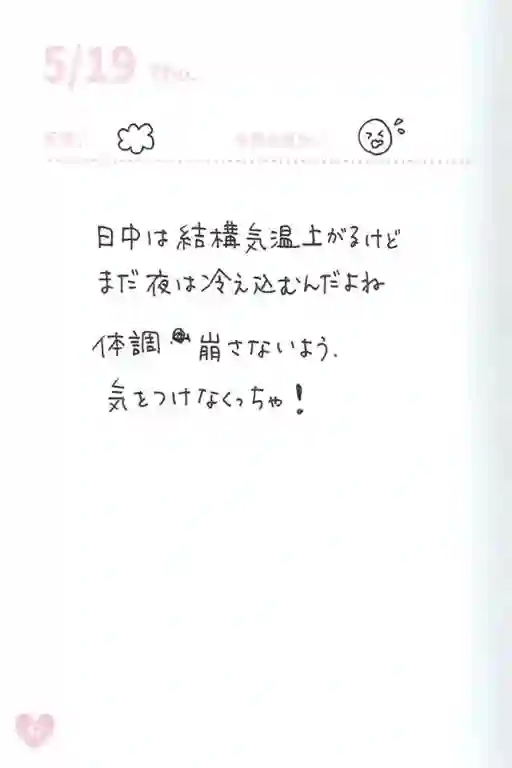 5/19 Thu.
日中は結構気温上がるけど
まだ夜は冷え込むんだよね
体調崩さないよう.
気をつけなくっちゃ!